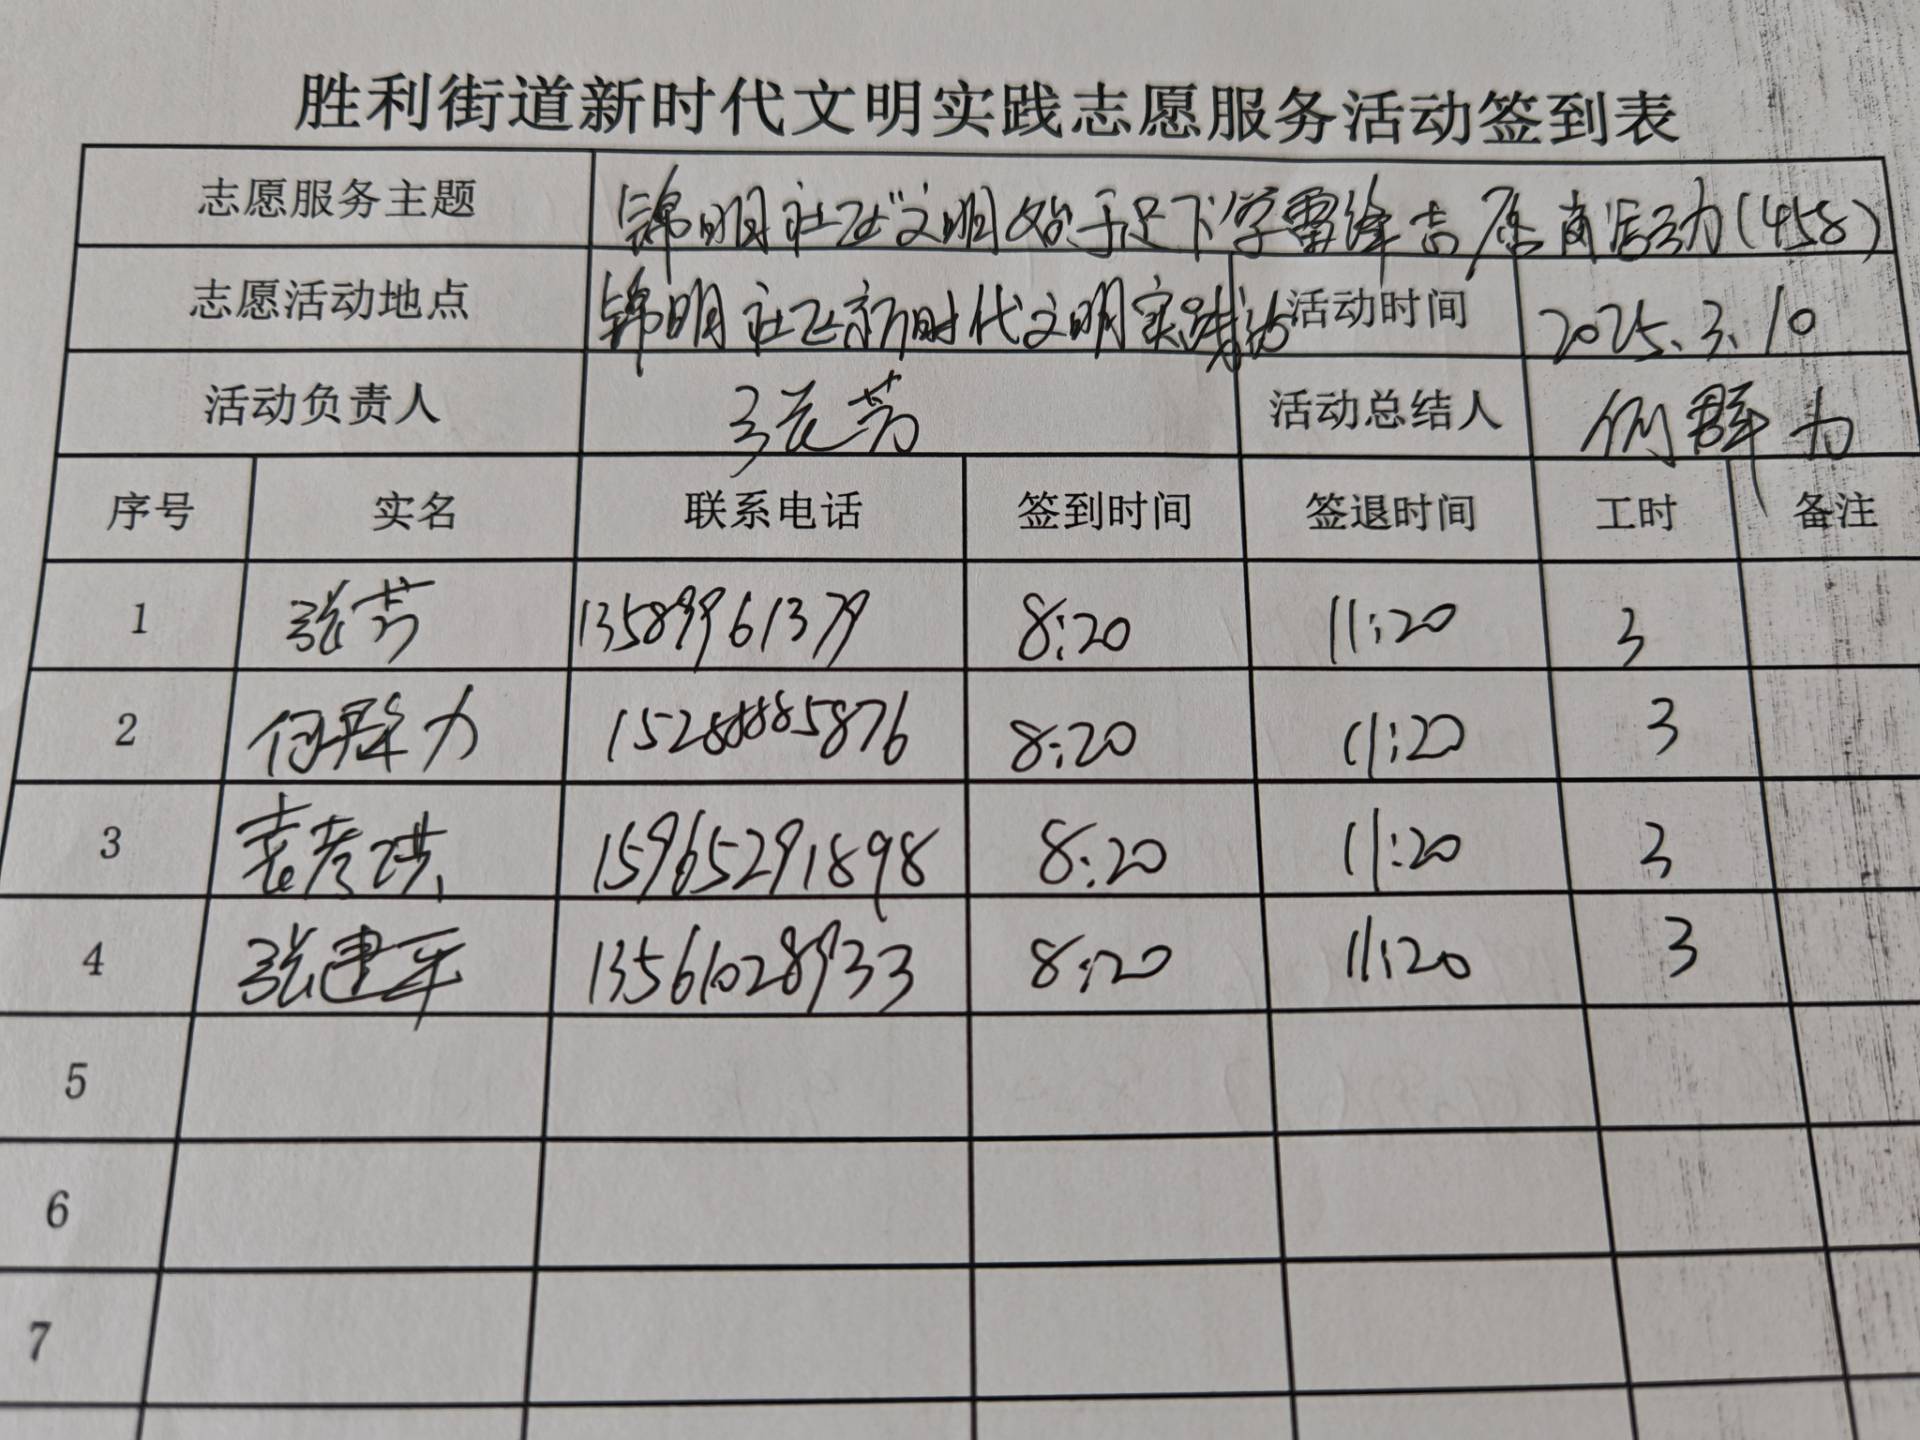 胜利街道新时代文明实践志愿服务活动签到表
志愿服务主题 锦明社区"文明始于足下学雷锋志愿岗活动(458)
志愿活动地点 锦明社区新时代文明实践站 活动时间 2025.3.10
活动负责人 张芳 活动总结人 何群力
序号 实名 联系电话 签到时间 签退时间 工时 备注
1 张芳 13589961379 8:20 11:20 3
2 何群力 15288885876 8:20 11:20 3
3 袁 琪 15965291898 8:20 11:20 3
4 张建平 13561028933 8:20 11:20 3
5
6
7